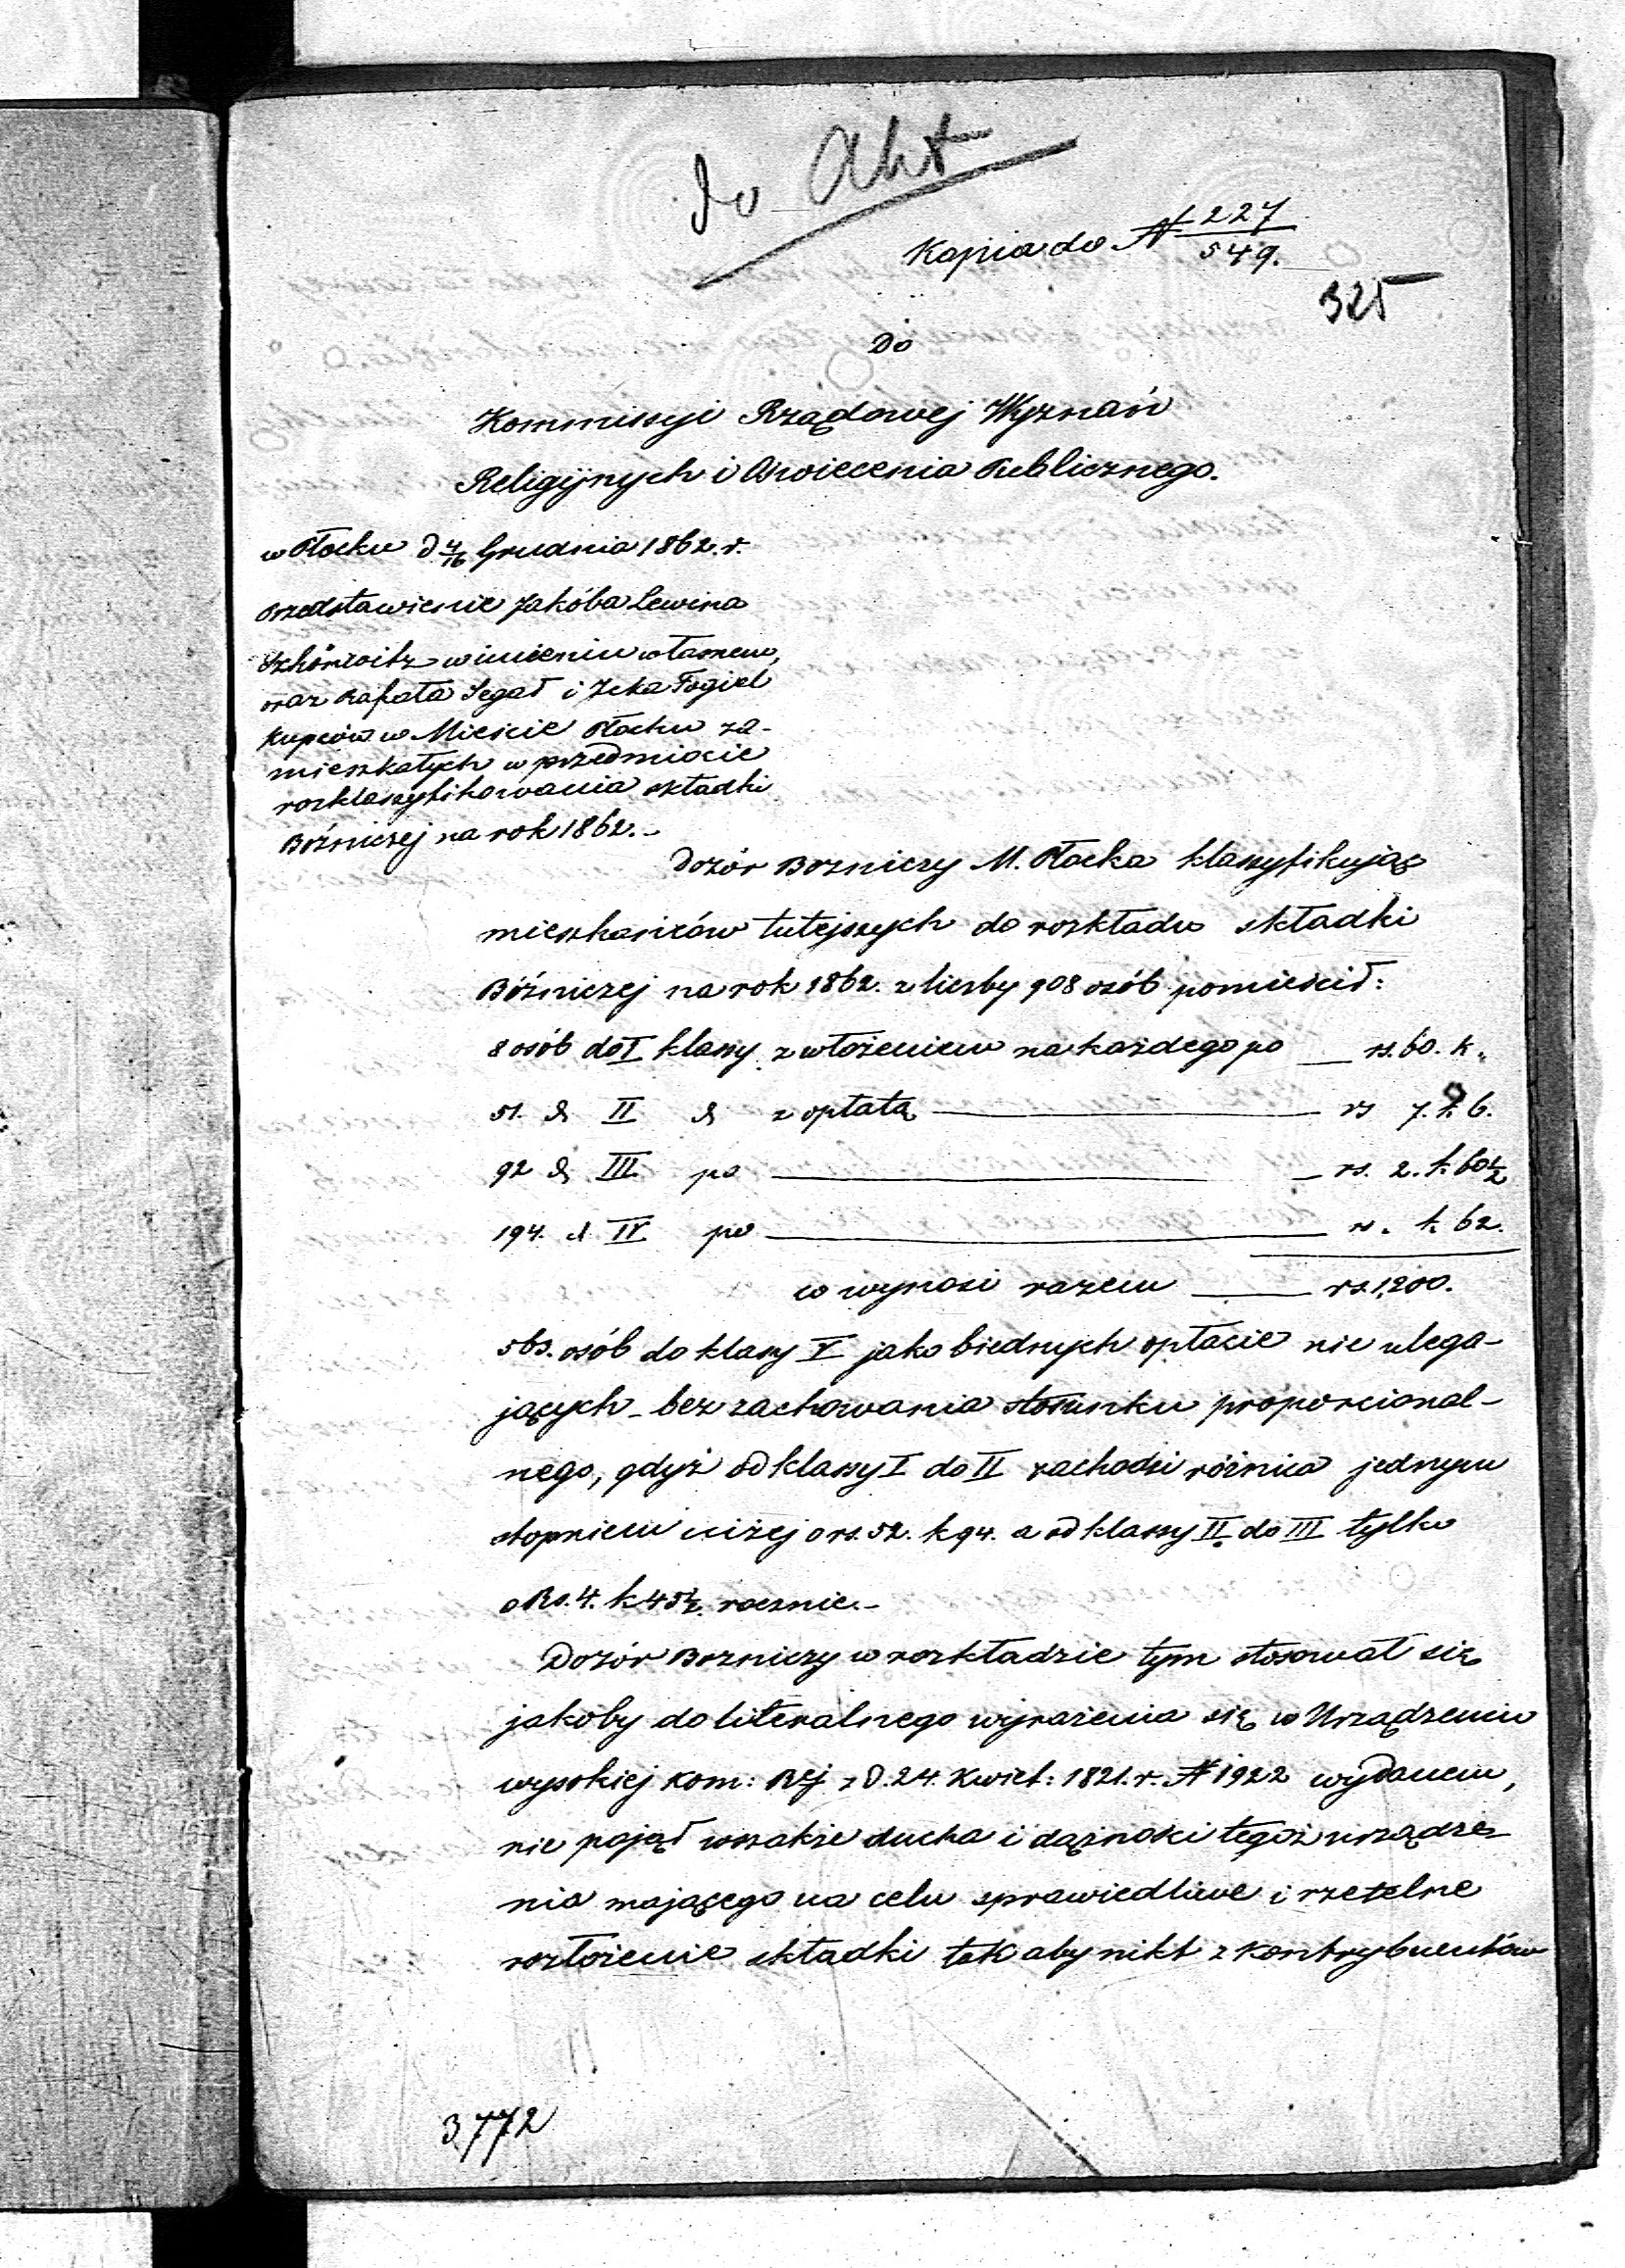 do Akt
Kopia do N 227/549.
325
Do
Kommissyi Rządowej Wyznań
Religijnych i Oświecenia Publicznego.
w Płocku d 4/16 Grudnia 1862. r.
Przedstawienie Jakóba Lewina
Schönwitz w imieniu własnem,
oraz Rafała Segał i Icka Fogiel
Kupców w Mieście Płocku za-
mieszkałych w przedmiocie
rozklassyfikowania składki
Bóźniczej na rok 1862.-
Dozór Bozniczy M. Płocka klassyfikując
mieszkańców tutejszych do rozkładu składki
Bóźniczej na rok 1862. z liczby 908 osób pomieścił:
8 osób do I klassy z włożeniem na każdego po — rs. 60. k „
51. d II d z opłatą — rs 7. k 6.
92 d III po — rs. 2. k. 60½
194. d IV po — rs „ k. 62.
w wynosi razem — rs. 1,200.
563. osób do klassy V jako biednych opłacie nie ulega-
jących - bez zachowania stosunku proporcional-
nego, gdyż od klassy I do II zachodzi różnica jednym
stopniem niżej o rs. 52. k 94. a od klassy II do III tylko
o Rs. 4. k 45½. rocznie.-
Dozór Bozniczy w rozkładzie tym stosował się
jakoby do literalnego wyrażenia się w Urządzeniu
wysokiej Kom: Rej z D. 24. Kwiet: 1821. r. N 1922 wydanem,
nie pojął wszakże ducha i dążności tegoż urządze-
nia mającego na celu sprawiedliwe i rzetelne
rozłożenie składki tak aby nikt z kontrybuentów
3772